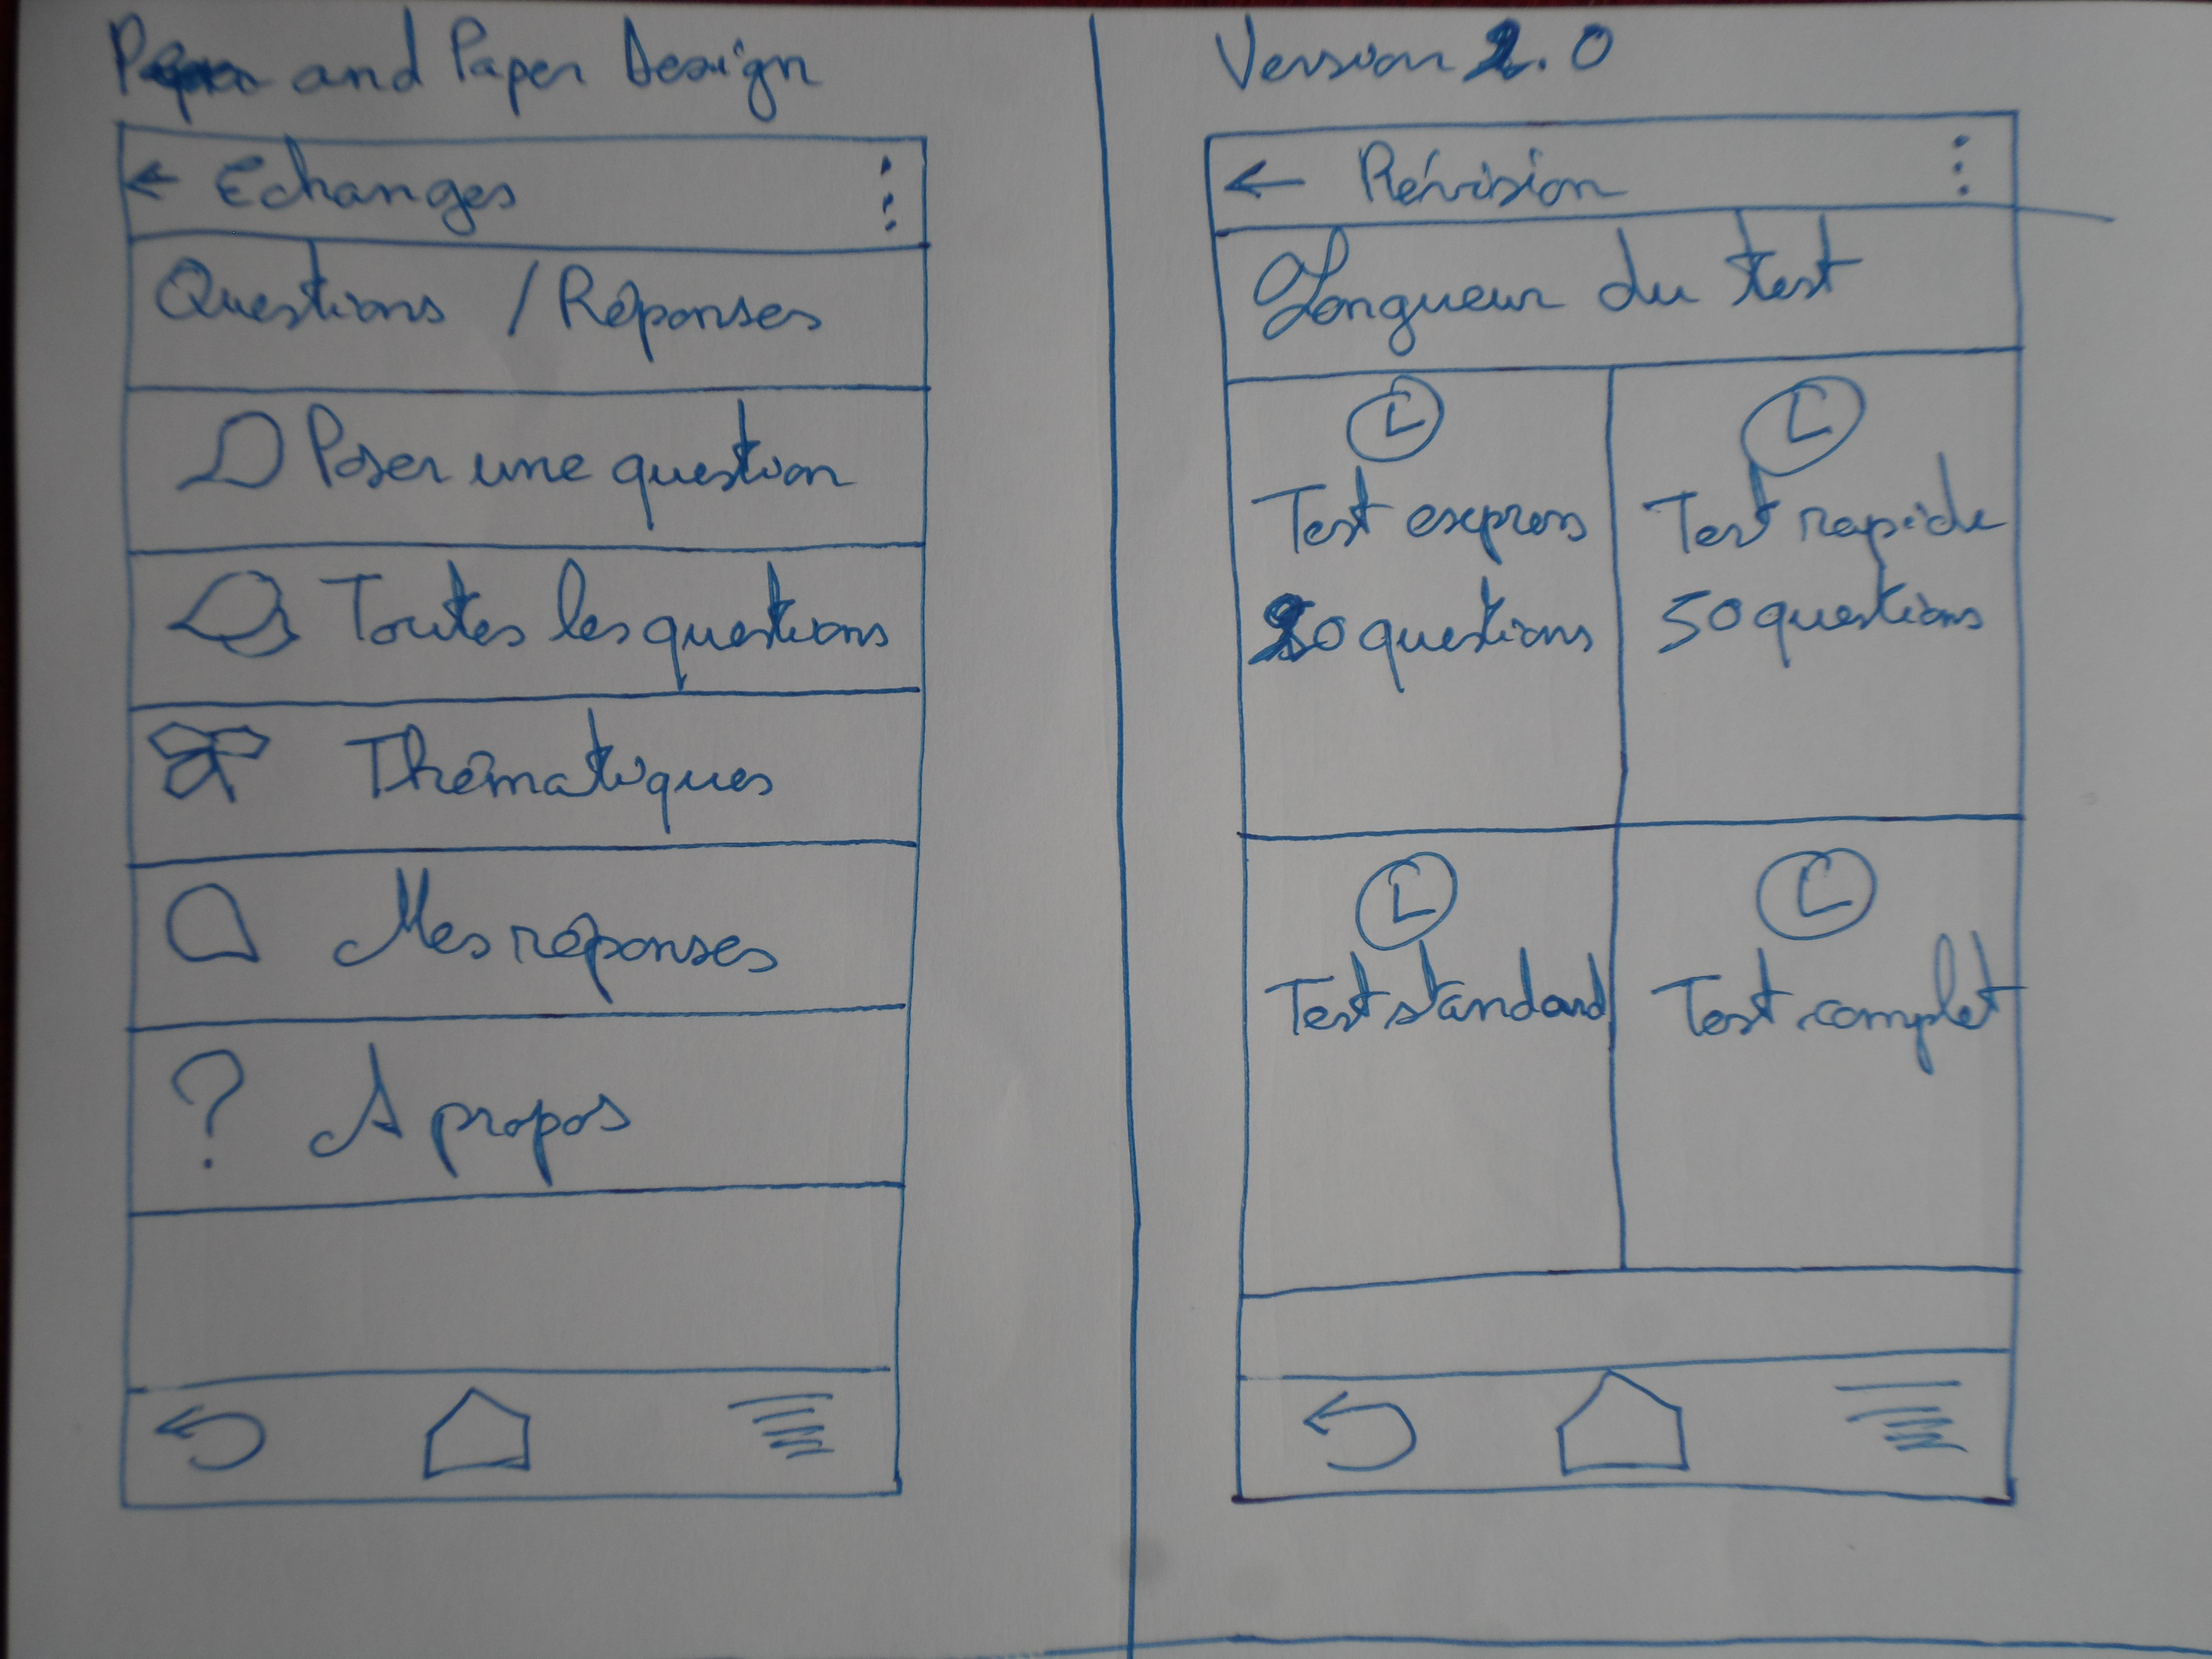 and Paper Design
Version 2.0
Echanges
Questions / Réponses
Poser une question
Toutes les questions
Thématiques
Mes réponses
? A propos
Révision
Longueur du test
Test express
20 questions
Test rapide
50 questions
Test standard
Test complet